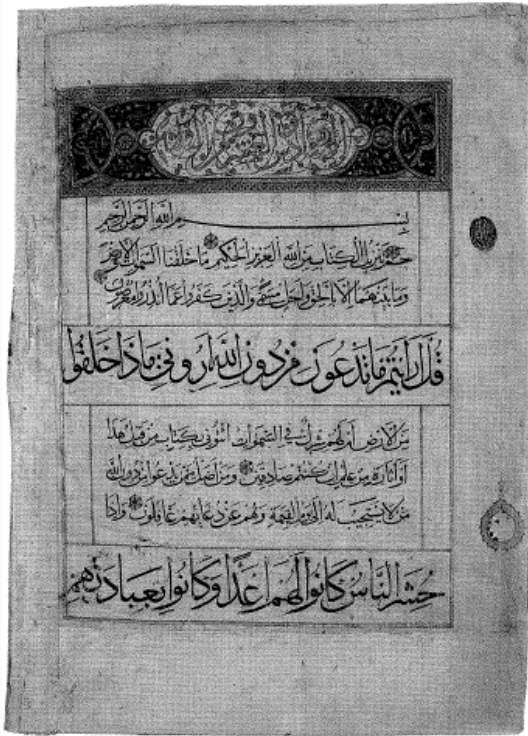 بسم الله الرحمن الرحيم
حم تنزيل الكتاب من الله العزيز الحكيم ما خلقنا السموات والارض
وما بينهما الا بالحق واجل مسمى والذين كفروا عما انذروا معرضون
قل ارايتم ما تدعون من دون الله اروني ماذا خلقوا
من الارض ام لهم شرك في السموات ائتوني بكتاب من قبل هذا
او اثارة من علم ان كنتم صادقين ومن اضل ممن يدعوا من دون الله
من لا يستجيب له الى يوم القيمة وهم عن دعائهم غافلون واذا
حشر الناس كانوا لهم اعدا وكانوا بعبادتهم